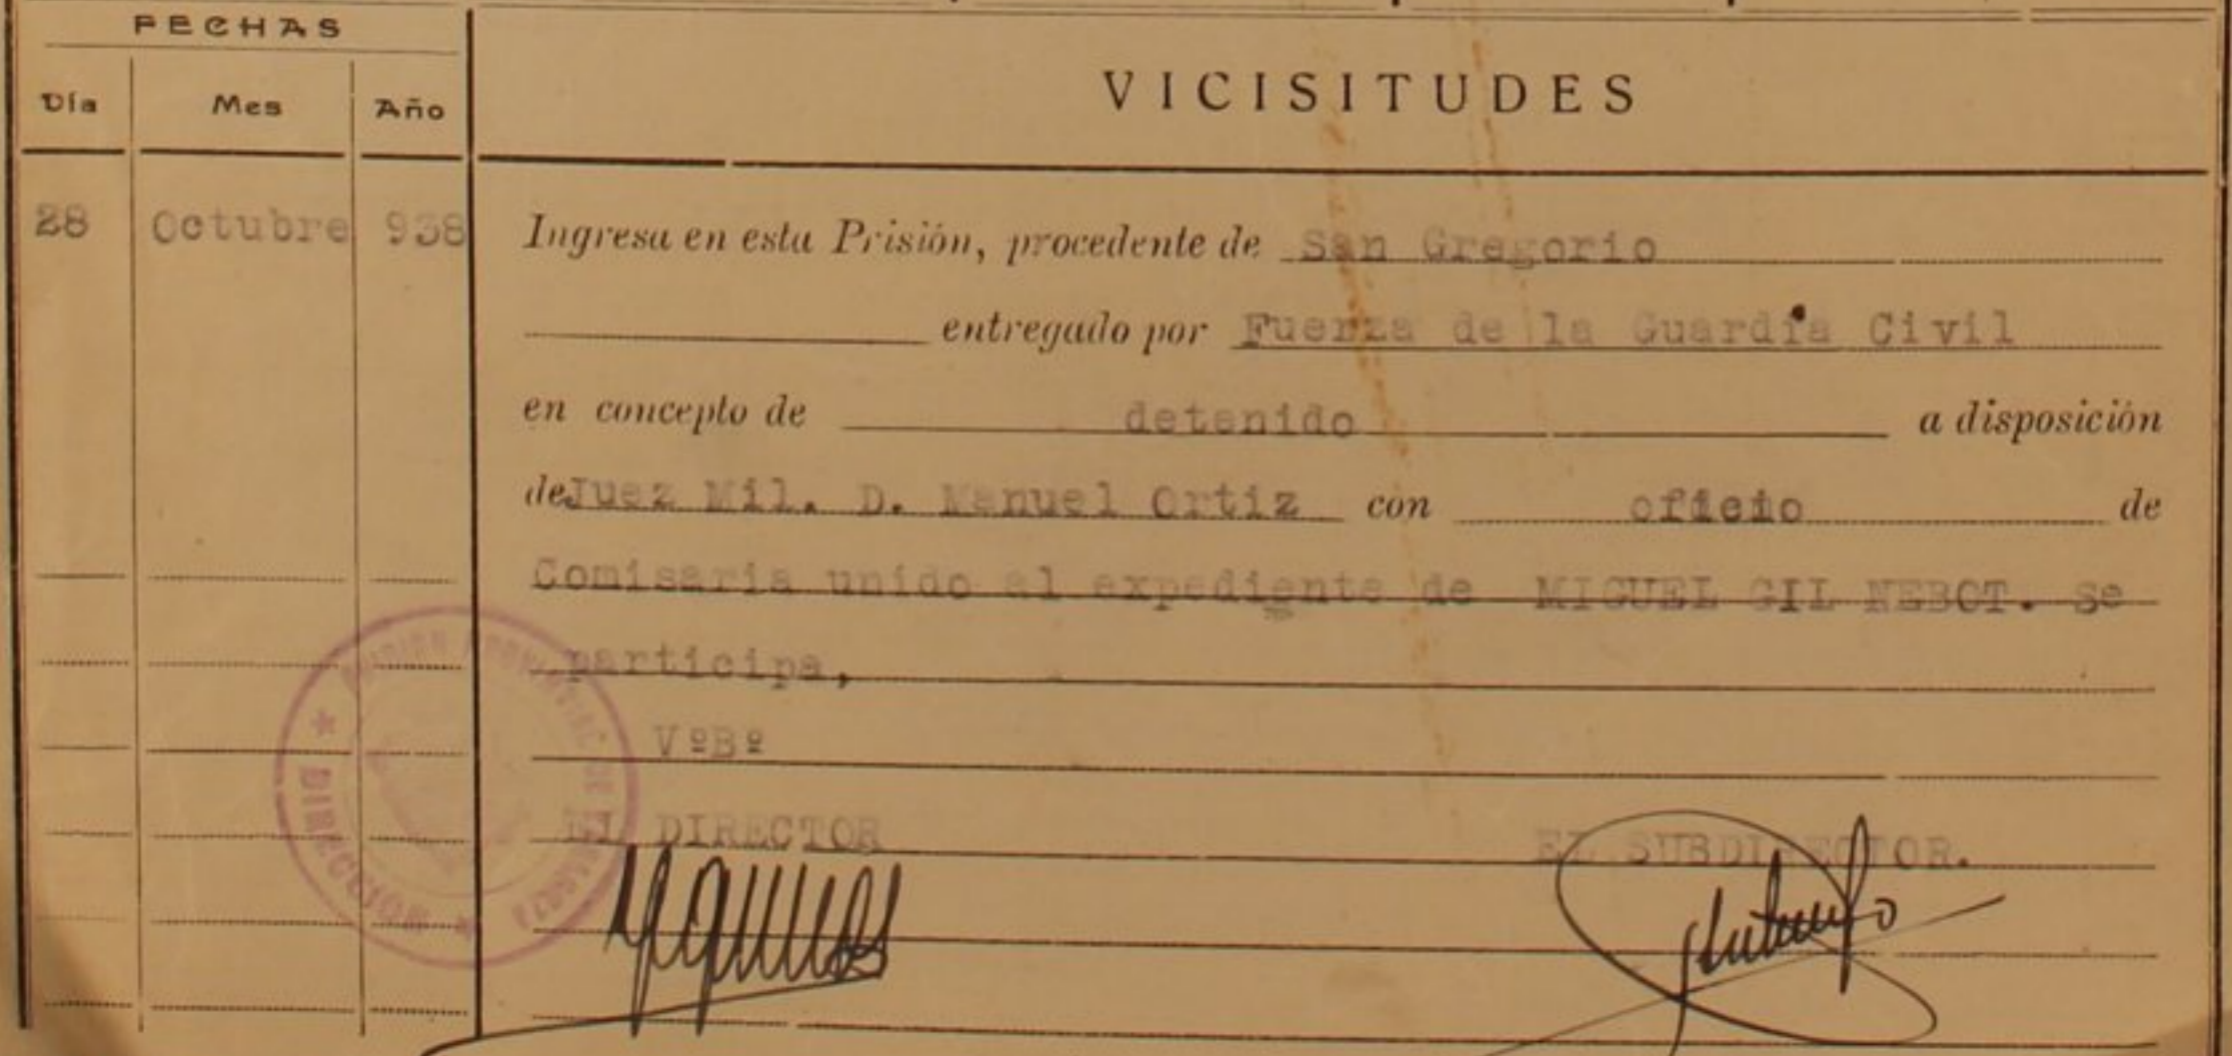 FECHAS
Día Mes Año
VICISITUDES
28 Octubre 938 Ingresa en esta Prisión, procedente de San Gregorio
entregado por Fuerza de la Guardia Civil
en concepto de detenido a disposición
de Juez Mil. D. Manuel Ortiz con oficio de
Comisaria unido al expediente de MIGUEL GIL NEBOT. Se
participa,
VºBº
EL DIRECTOR EL SUBDIRECTOR.
PRISION PROVINCIAL DE
* DIRECCION *